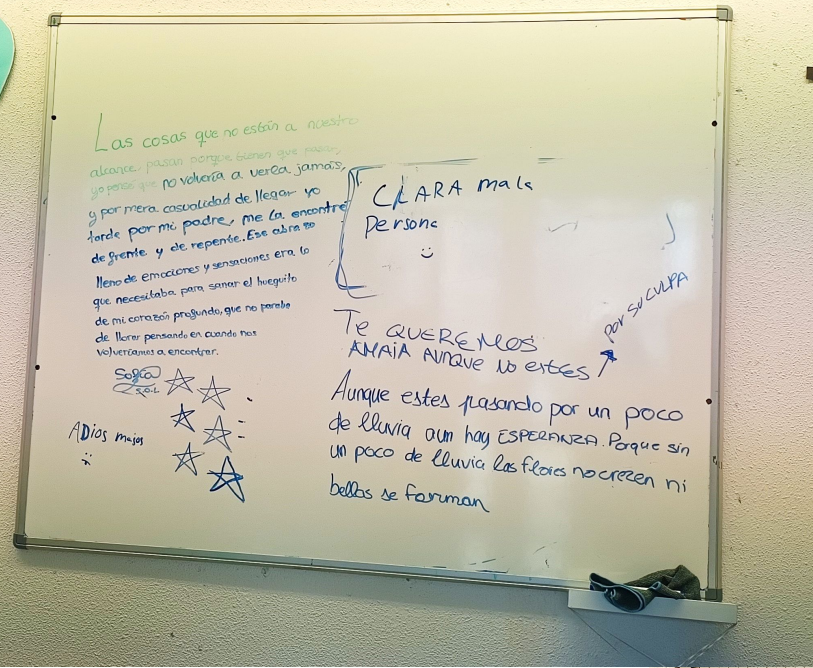 Las cosas que no están a nuestro
alcance, pasan porque tienen que pasar,
yo pensé que no volvería a verla jamás,
y por mera casualidad de llegar yo
tarde por mi padre, me la encontré
de frente y de repente. Ese abrazo
lleno de emociones y sensaciones era lo
que necesitaba para sanar el hueguito
de mi corazón profundo, que no paraba
de llorar pensando en cuando nos
volveríamos a encontrar.
Sofía
S.O.L
ADios majos
CLARA mala
persona
Te QUEREMOS
AMAIA AUNQUE NO estes
por SU CULPA
Aunque estes pasando por un poco
de lluvia aun hay ESPERANZA. Porque sin
un poco de lluvia las flores no crezen ni
bellas se forman